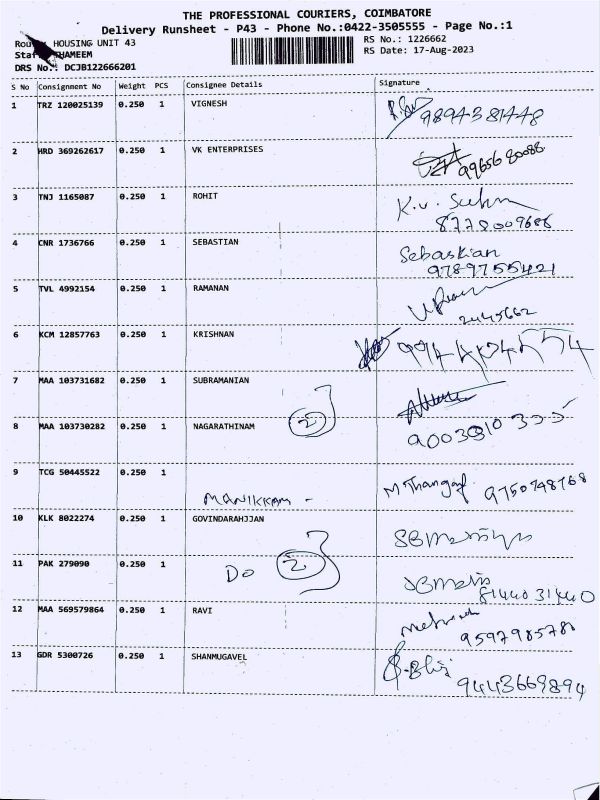 THE PROFESSIONAL COURIERS, COIMBATORE
Delivery Runsheet - P43 - Phone No.:0422-3505555 - Page No.:1
HOUSING UNIT 43
RS No.: 1226662
RS Date: 17-Aug-2023
DRS No.: DCJB122666201
S No Consignment No Weight PCS Consignee Details Signature
1 TRZ 120025139 0.250 1 VIGNESH
9894381448
2 HRD 369262617 0.250 1 VK ENTERPRISES
3 TNJ 1165087 0.250 1 ROHIT K.V.
8778009688
4 CNR 1736766 0.250 1 SEBASTIAN Sebastian
9789755421
5 TVL 4992154 0.250 1 RAMANAN
2445662
6 KCM 12857763 0.250 1 KRISHNAN
7 MAA 103731682 0.250 1 SUBRAMANIAN
2
8 MAA 103730282 0.250 1 NAGARATHINAM
9 TCG 50445522 0.250 1 MANIKKAM - M Thangaraj 9750748768
10 KLK 8022274 0.250 1 GOVINDARAHJJAN
11 PAK 279090 0.250 1 Do 2
8144031440
12 MAA 569579864 0.250 1 RAVI
9597985780
13 GDR 5300726 0.250 1 SHANMUGAVEL
9443669894